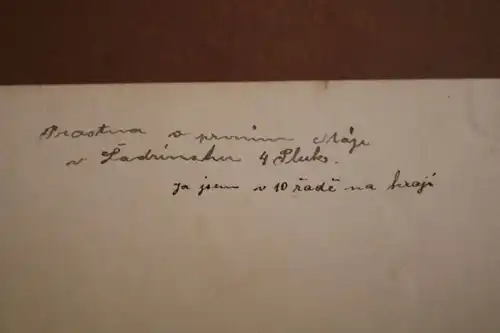 Slavnost s prvním Máje
v Šadrinsku 4 Pluk.
Ja jsem v 10 řadě na kraji